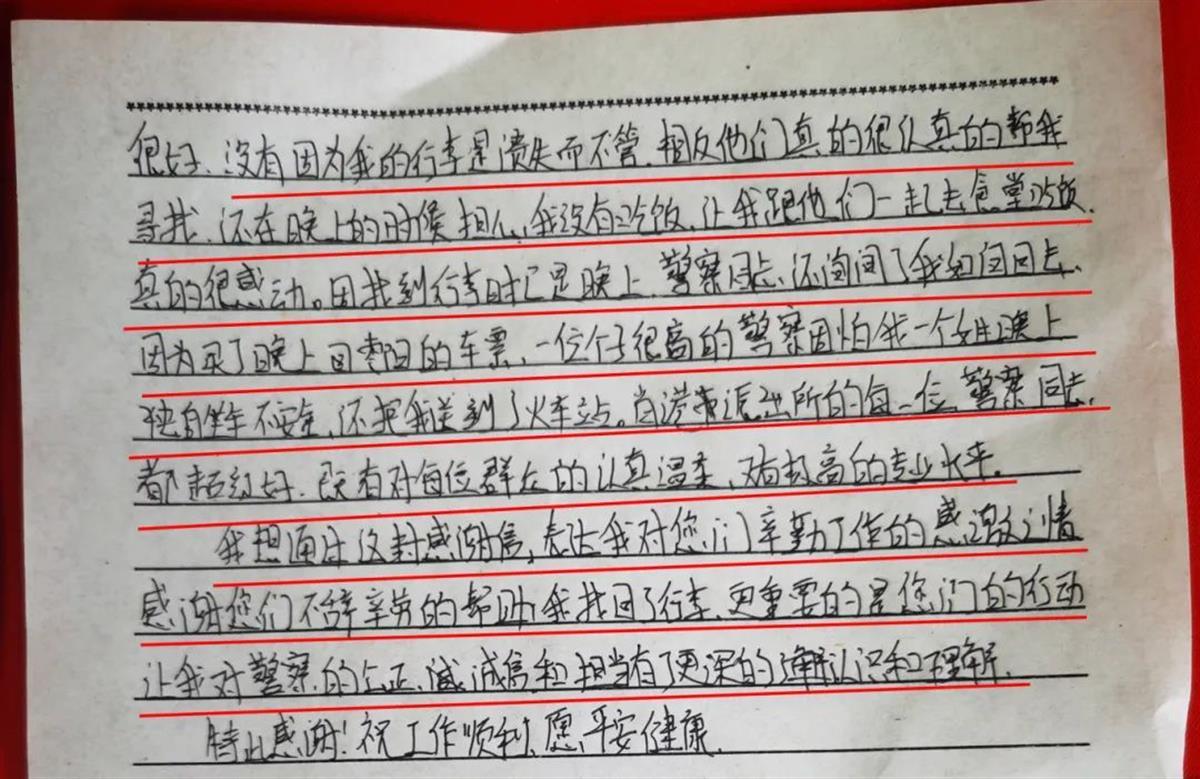 很好、没有因为我的行李是遗失而不管.相反他们真的很认真的帮我
寻找、还在晚上的时候担心我没有吃饭,让我跟他们一起去食堂吃饭.
真的很感动。因找到行李时已是晚上、警察同志、还询问了我如何回去、
因为买了晚上回枣阳的车票、一位个子很高的警察因怕我一个女生晚上
独自坐车不安全,还把我送到了火车站。肖港派出所的每一位警察同志、
都超级好、既有对每位群众的认真温柔、又有极高的专业水平.
我想通过这封感谢信,表达我对您们辛勤工作的感激之情
感谢您们不辞辛劳的帮助我找回了行李、更重要的是您们的行动
让我对警察的公正、诚信和担当有了更深的认识和理解.
特此感谢!祝工作顺利、愿平安健康.